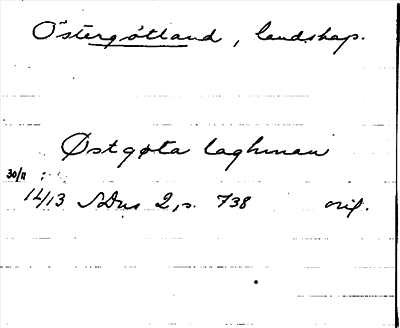 Östergötland, landskap.
Østgøta laghman
30/11
1413 SDns 2, s. 738 orig.